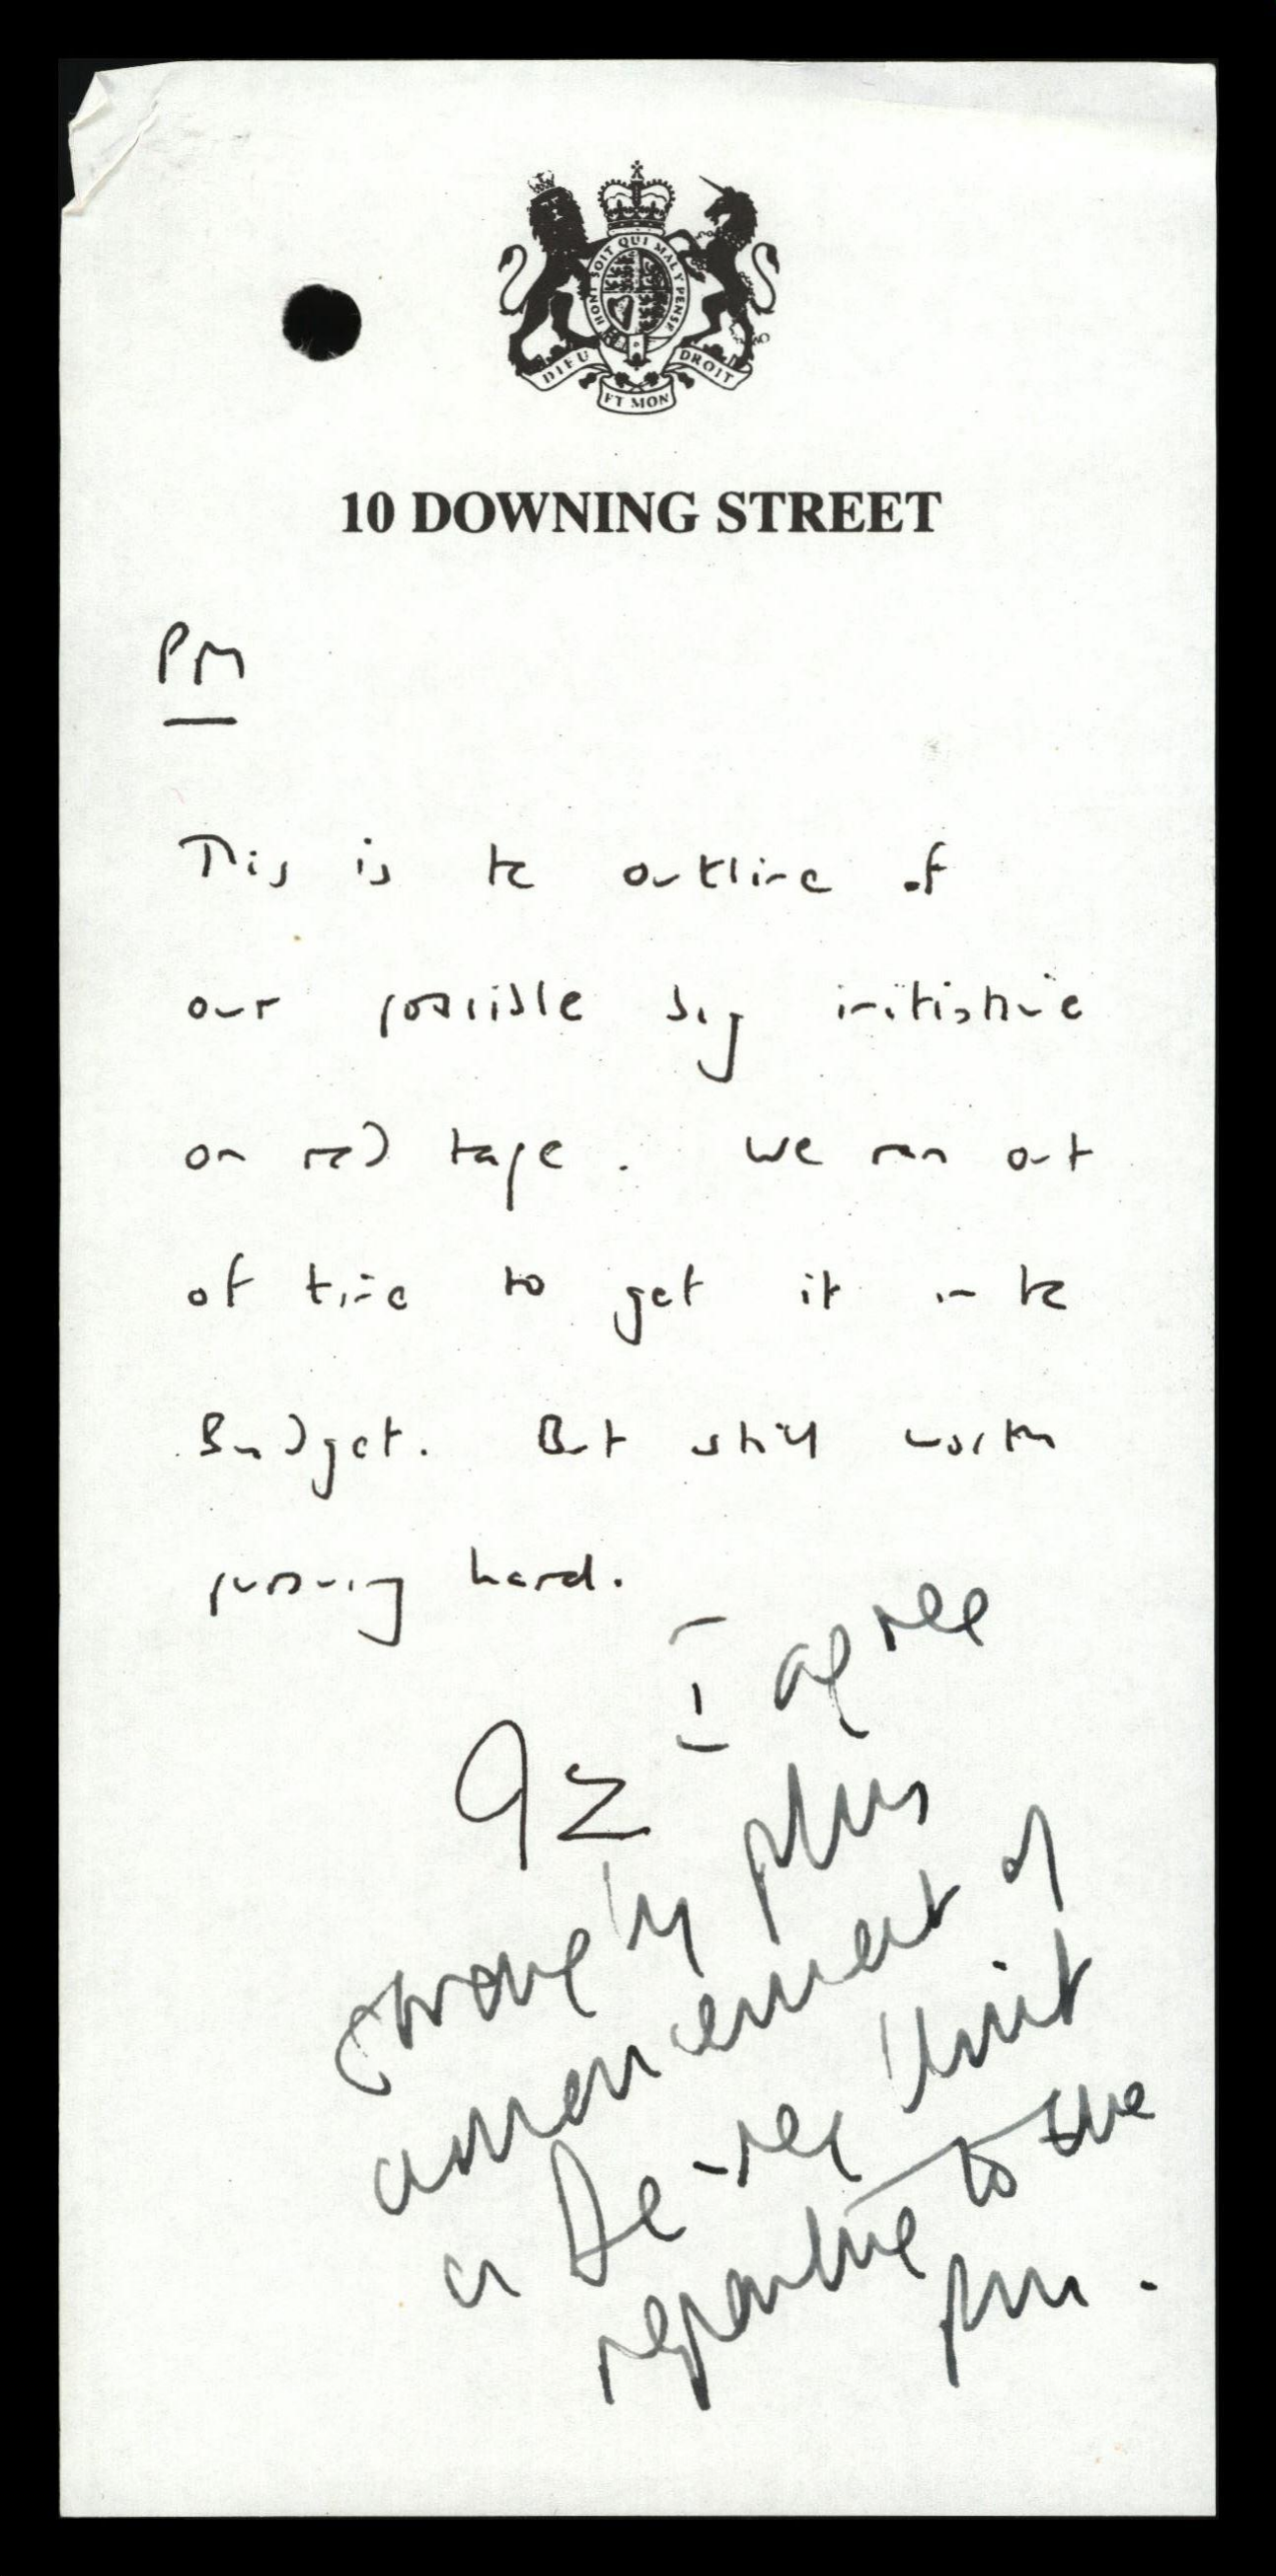 HONI SOIT QUI MAL Y PENSE
DIEU ET MON DROIT
10 DOWNING STREET
PM
This is the outline of
our possible big initiative
on red tape. We ran out
of time to get it in the
Budget. But still worth
pursuing hard.
I agree
strongly plus
announcement of
a De-reg Unit
reporting to the
PM.